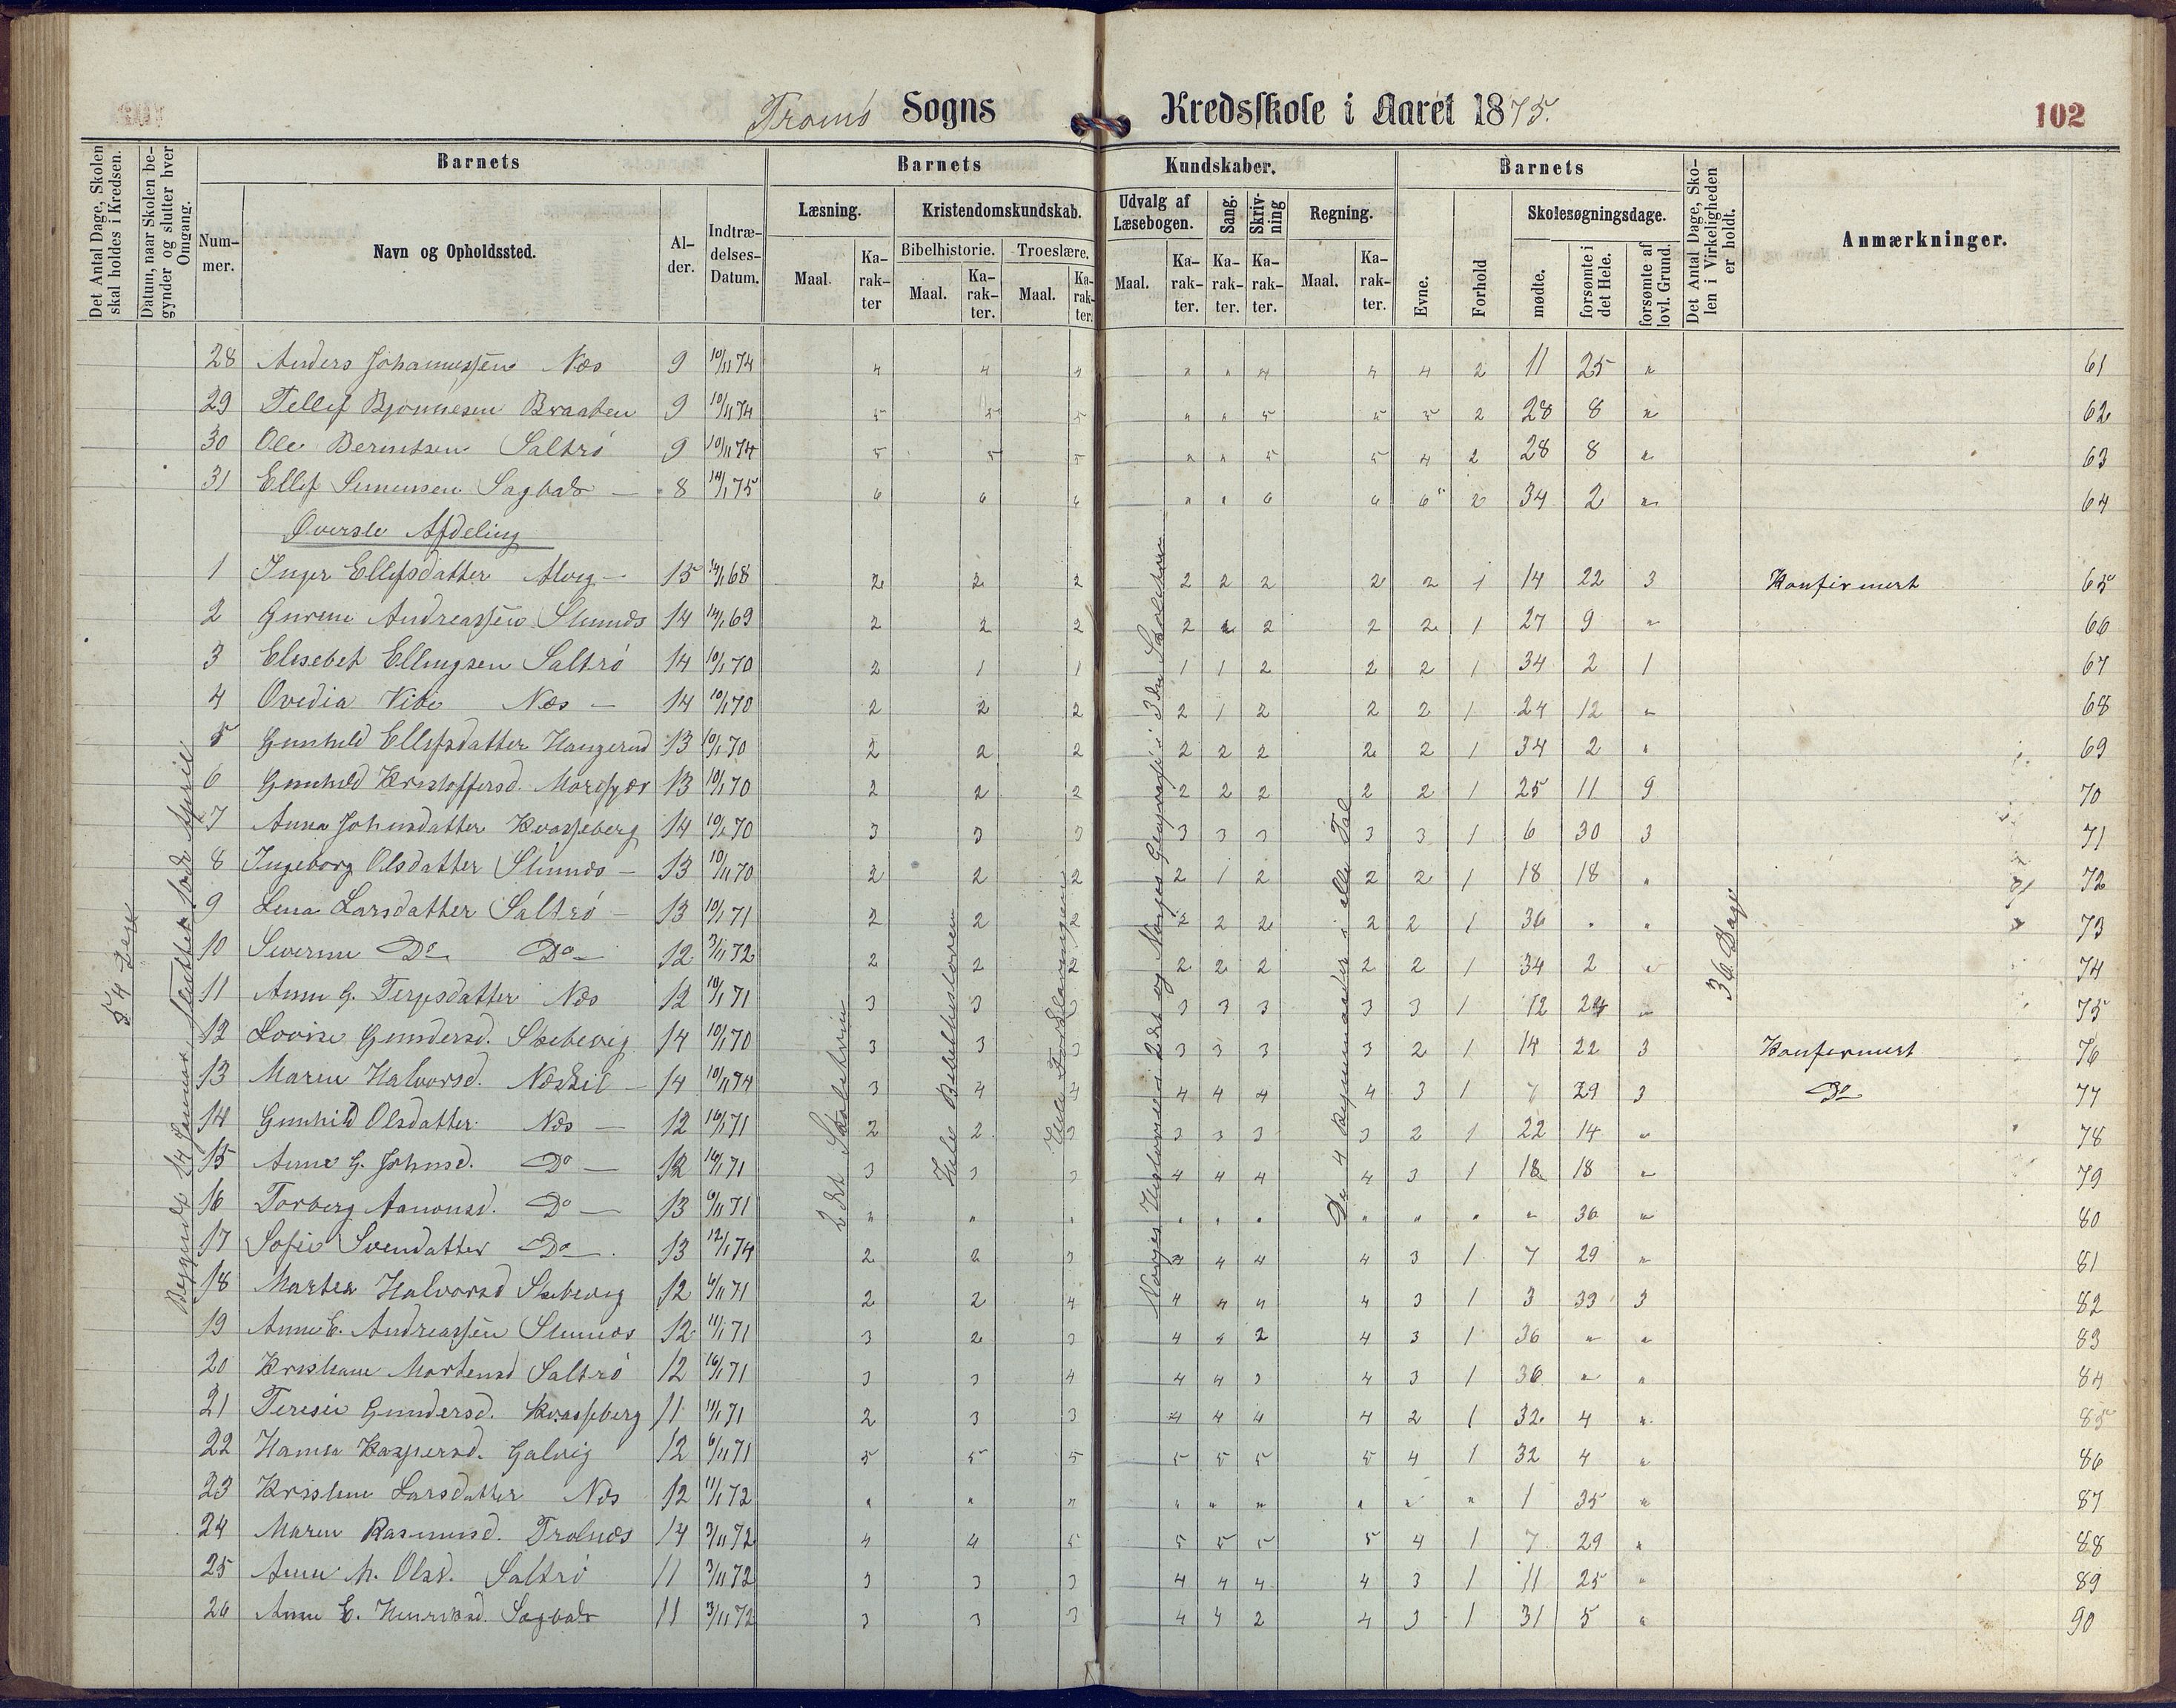 Tromö Sogns Kredsskole i Aaret 1875.
102
Det Antal Dage, Skolen skal holdes i Kredsen.
Datum, naar Skolen begynder og slutter hver Omgang.
Barnets
Nummer.
Navn og Opholdssted.
Alder.
Indtrædelses-Datum.
Barnets Kundskaber.
Læsning.
Maal.
Karakter
Kristendomskundskab.
Bibelhistorie.
Maal.
Karakter.
Troeslære.
Maal.
Karakter.
Udvalg af Læsebogen.
Maal.
Karakter.
Sang.
Karakter.
Skrivning
Karakter.
Regning.
Maal.
Karakter.
Barnets
Evne.
Forhold
Skolesøgningsdage.
mødte.
forsømte i det Hele.
forsømte af lovl. Grund.
Det Antal Dage, Skolen i Virkeligheden er holdt.
Anmærkninger.
28 Anders Johannessen Næs 9 10/11 74 4 4 4 " " 4 4 4 2 11 25 " 61
29 Tellef Bjonnesen Braaten 9 10/11 74 5 5 5 " " 5 5 5 2 28 8 " 62
30 Ole Berntsen Saltrö 9 10/11 74 5 5 5 " " 5 5 4 2 28 8 " 63
31 Ellef Simensen Sagbak 8 14/1 75 6 6 6 " " 6 6 6 2 34 2 " 64
Øverste Afdeling
1 Inger Ellefsdatter Alvig 15 14/1 68 2 2 2 2 2 2 2 2 1 14 22 3 Konfirmert 65
2 Andreassen 14 14/1 69 2 2 2 2 2 2 2 2 1 27 9 " 66
3 Elisebet Ellingsen Saltrö 14 10/1 70 2 1 1 1 1 2 2 2 1 34 2 1 67
4 Ovedia Vibe Næs 14 10/1 70 2 2 2 2 1 2 2 2 1 24 12 " 68
5 Gunhild Ellefsdatter Haugerud 13 10/1 70 2 2 2 2 2 2 2 2 1 34 2 " 69
6 Gunhild Kristoffersd. 13 10/1 70 2 2 2 2 2 2 2 2 1 25 11 9 70
7 Anna Johnsdatter Kvasseberg 14 10/1 70 3 3 3 3 3 3 3 3 1 6 30 3 71
8 Ingeborg Olsdatter 13 10/11 70 2 2 2 2 1 2 2 2 1 18 18 " 72
9 Lena Larsdatter Saltrö 13 10/1 71 2 2 2 2 2 2 2 2 1 36 " " 73
10 Severine Do Do 12 3/11 72 2 2 2 2 2 2 2 2 1 34 2 " 74
11 Anne G. Terjesdatter Næs 12 10/1 71 3 3 3 3 3 3 3 3 1 12 24 " 75
12 Lovise Gundersd. Skibevig 14 10/1 70 3 3 3 3 3 3 3 2 1 14 22 3 Konfirmert 76
13 Maren Halvorsd. Næskil 14 10/11 74 3 4 4 4 4 4 4 3 1 7 29 3 Do 77
14 Gunhild Olsdatter Næs 12 16/1 71 2 2 3 3 3 3 3 2 1 22 14 " 78
15 Anne G. Johnsd. Do 12 16/1 71 3 3 3 4 4 4 4 3 1 18 18 " 79
16 Torborg Aanonsd. Do 13 6/11 71 " " " " " " " " " " 36 " 80
17 Sofie Svendatter Do 13 12/1 74 2 2 3 3 4 4 4 3 1 7 29 " 81
18 Martea Halvorsd Skibevig 12 6/11 71 2 2 4 4 4 4 4 3 1 3 33 3 82
19 Anne E. Andreassen 12 11/1 71 3 2 3 4 4 2 4 3 1 36 " " 83
20 Kristiane Mortensd Saltrö 12 16/1 71 3 3 4 4 4 3 4 3 1 36 " " 84
21 Teresie Gundersd. Kvasseberg 11 11/1 71 2 3 3 4 4 4 4 2 1 32 4 " 85
22 Hanna Kaspersd. Galvig 12 6/11 71 5 5 5 5 5 5 5 4 1 32 4 " 86
23 Larsdatter Næs 12 11/1 72 " " " " " " " " " 1 35 " 87
24 Maren Rasmusd. Trolnæs 14 3/11 72 4 4 5 5 5 5 5 4 1 7 29 " 88
25 Anne M. Olsd. Saltrö 11 3/11 72 3 3 3 4 4 4 4 3 1 11 25 " 89
26 Anne E. Henriksd. Sagbak 11 3/11 72 3 3 3 4 4 2 4 3 1 31 5 " 90
Begyndt 14 Januar sluttet April
2den Skoletrin
Hele Bibelhistorien
Hele Forklaringen
Norges Historie og Norges Geografi i 3die Skoletrin
De 4 Regnemaader i alle Tal
36 Dage